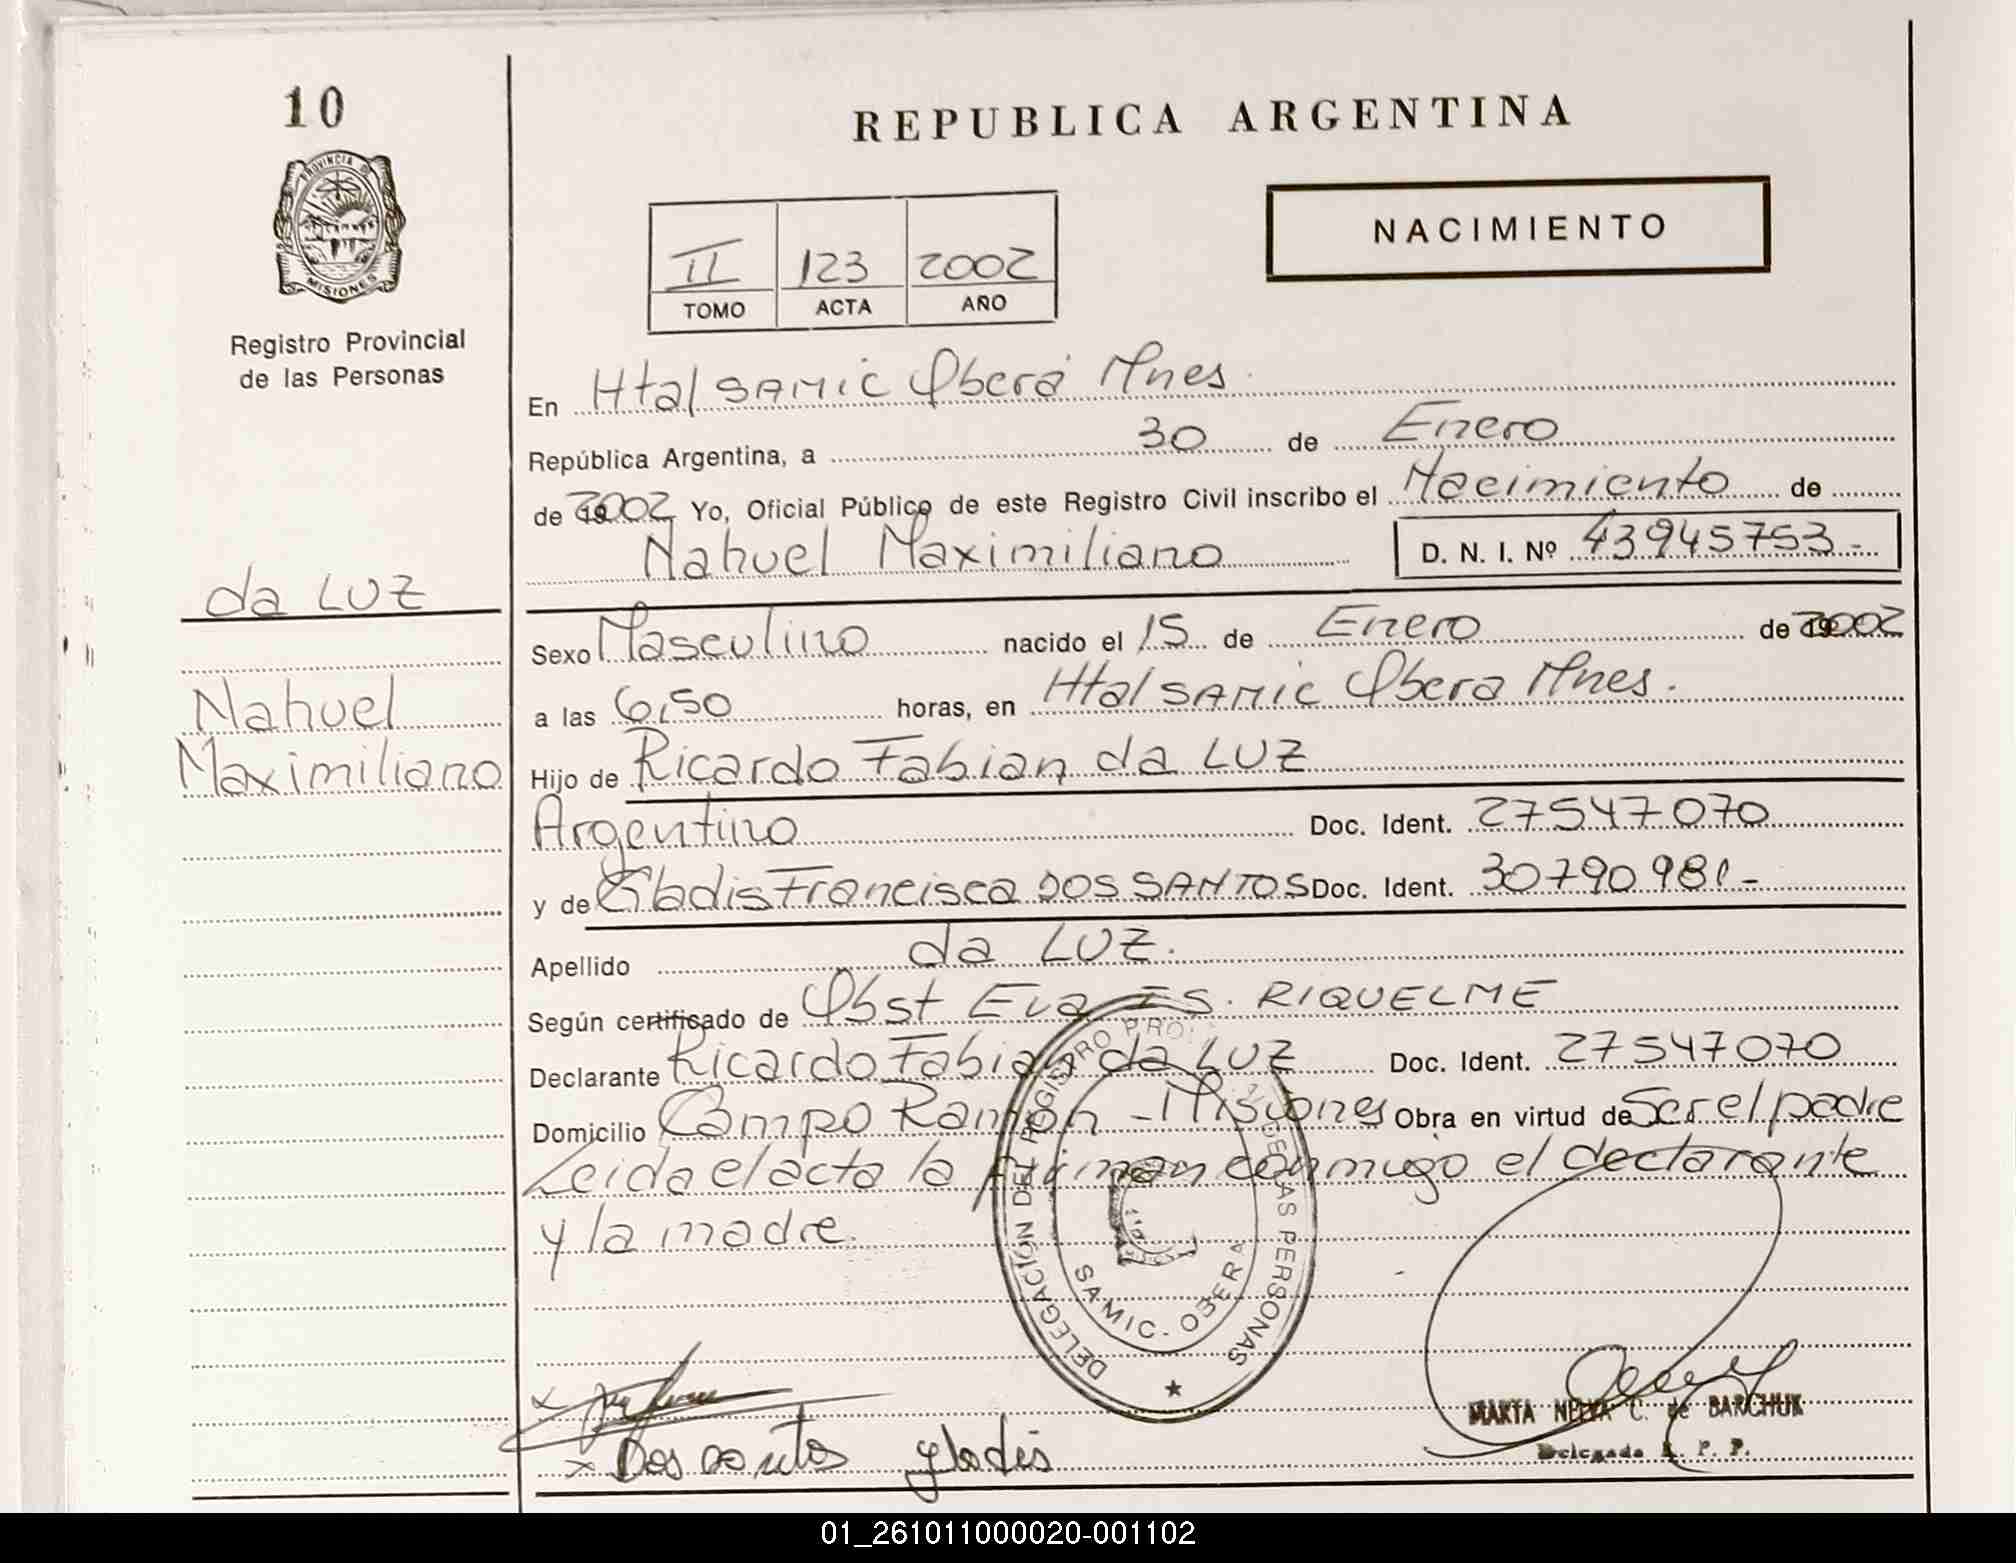 10
PROVINCIA DE
MISIONES
Registro Provincial
de las Personas
da LUZ
Nahuel
Maximiliano
REPUBLICA ARGENTINA
NACIMIENTO
II 123 2002
TOMO ACTA AÑO
En Htal SAMIC Oberá Mnes.
República Argentina, a 30 de Enero
de 2002 Yo, Oficial Público de este Registro Civil inscribo el Nacimiento de
Nahuel Maximiliano D. N. I. Nº 43945753-
Sexo Masculino nacido el 15 de Enero de 2002
a las 6,50 horas, en Htal SAMIC Obera Mnes.
Hijo de Ricardo Fabian da LUZ
Argentino Doc. Ident. 27547070
y de Gladis Francisca DOS SANTOS Doc. Ident. 30790981-
Apellido da LUZ.
Según certificado de Obst Eva IS. RIQUELME
Declarante Ricardo Fabian da LUZ Doc. Ident. 27547070
Domicilio Campo Ramón - Misiones Obra en virtud de Ser el padre
Leida el acta la firman conmigo el declarante
y la madre.
DELEGACIÓN DEL REGISTRO PRO DE LAS PERSONAS
SAMIC. OBERA
x
x Dos santos gladis
MARTA NELVA C. de BARCHUK
Delegada R. P. P.
01_261011000020-001102